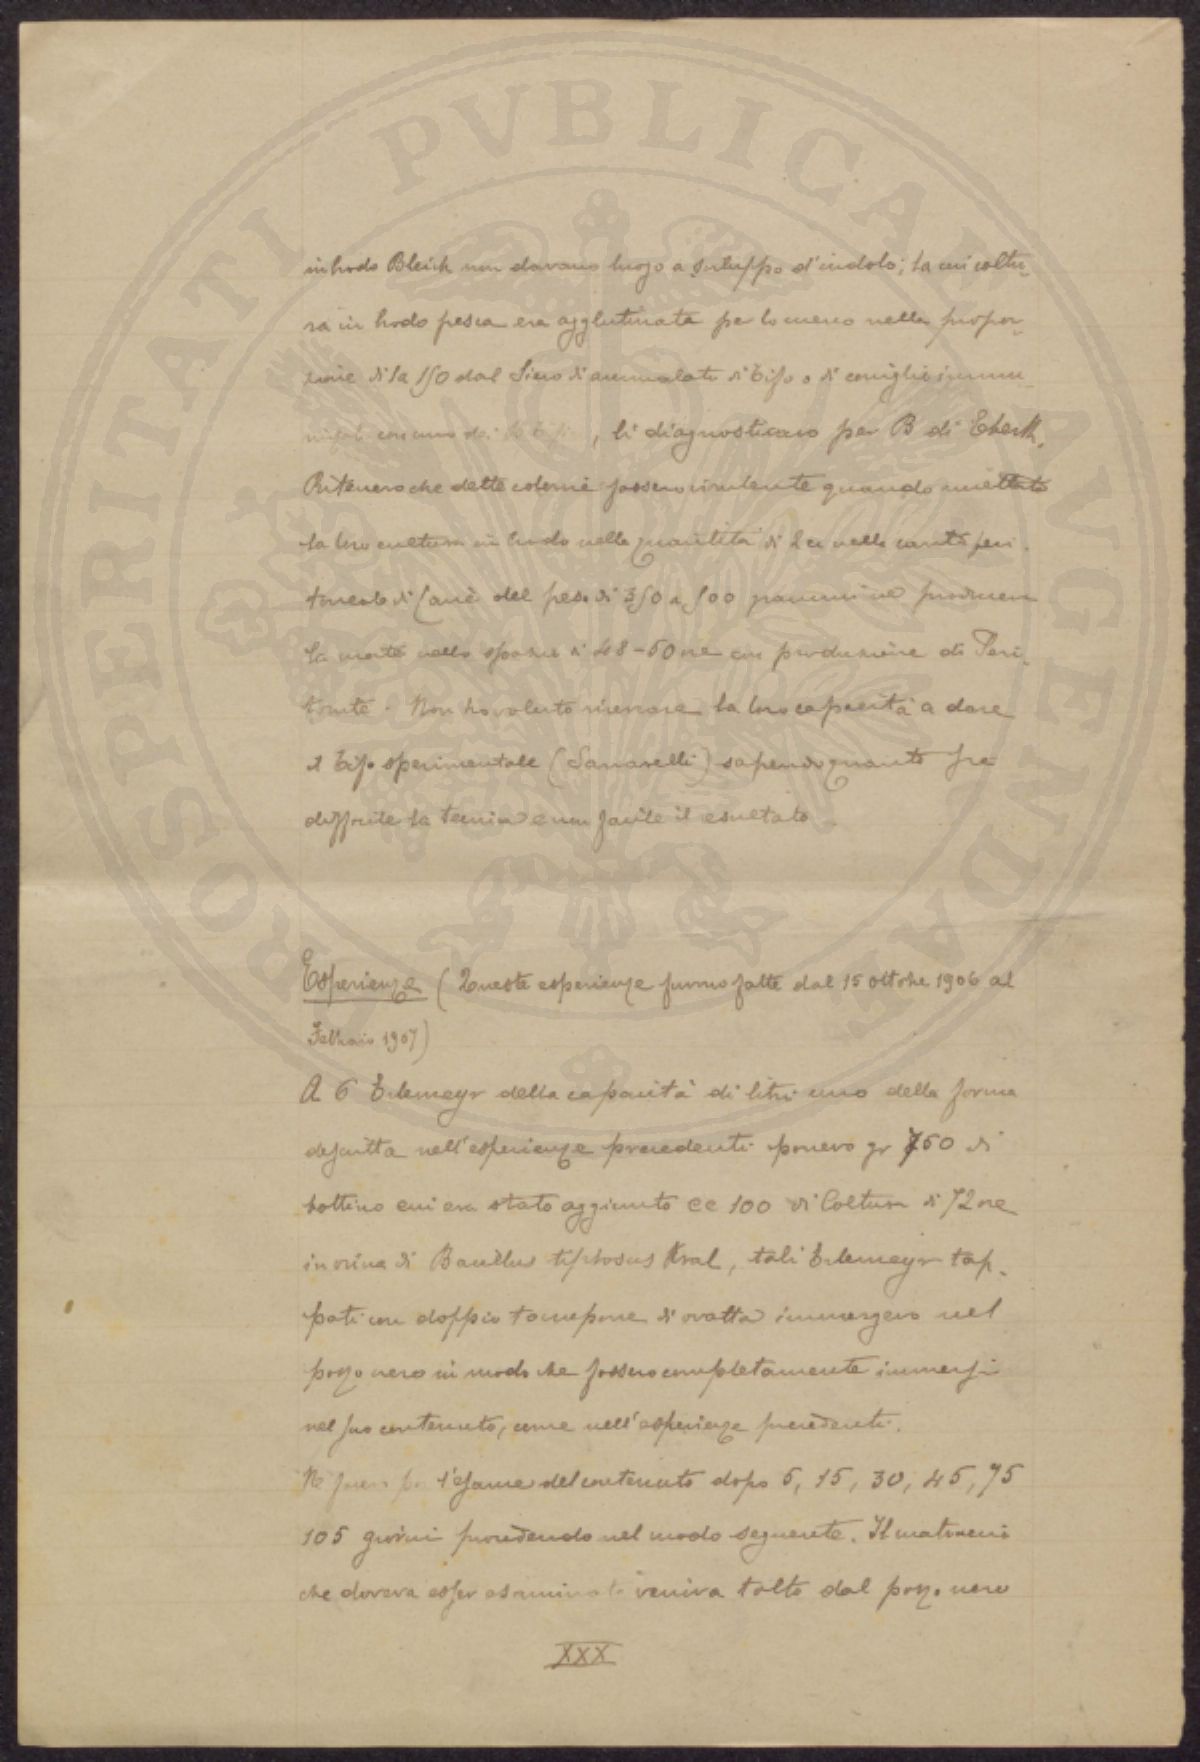 PROSPERITATI PVBLICAE AVGENDAE
in brodo Bleisch non davano luogo a sviluppo d'indolo; la cui coltu-
ra in brodo pesca era agglutinata per lo meno nella propor-
zione di 1 a 150 dal Siero di ammalati di tifo o di coniglio immu-
, li diagnosticavo per B di Eberth.
Ritenevo che dette colonie fossero virulente quando iniettata
la loro cultura in brodo nella quantità di 2 cc nella cavità peri-
toneale di Cavie del peso di 350 a 500 grammi ne produceva
la morte nello spazio di 48-60 ore con produzione di Peri-
tonite. Non ho voluto ricercare la loro capacità a dare
il tifo sperimentale (Sanarelli) sapendo quanto sia
difficile la tecnica e non facile il resultato.
Esperienze (Queste esperienze furono fatte dal 15 ottobre 1906 al
Febbraio 1907)
A 6 Erlemeyr della capacità di litri uno della forma
descritta nell'esperienze precedenti ponevo gr 750 di
bottino cui era stato aggiunto cc 100 di Coltura di 72 ore
in orina di Bacillus tiphosus Kral, tali Erlemeyr tap-
pati con doppio tampone di ovatta immergevo nel
pozzo nero in modo che fossero completamente immersi
nel suo contenuto, come nell'esperienze precedenti.
l'esame del contenuto dopo 5, 15, 30, 45, 75
105 giorni procedendo nel modo seguente. Il matraccio
che doveva esser esaminato veniva tolto dal pozzo nero
XXX